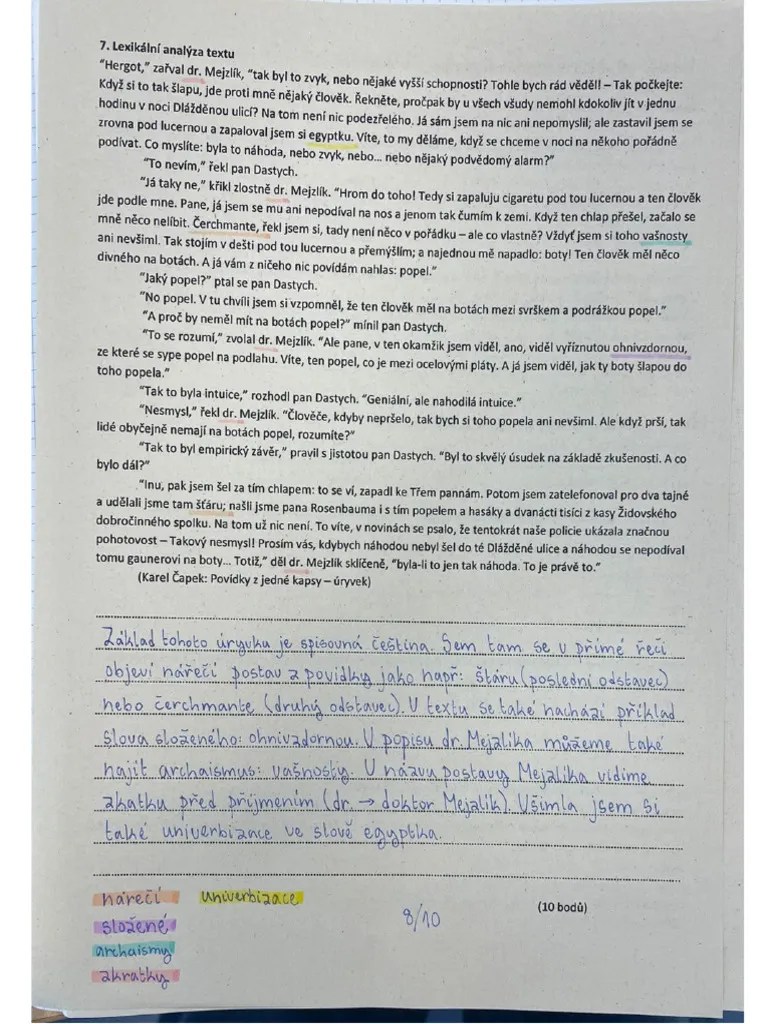 7. Lexikální analýza textu
"Hergot," zařval dr. Mejzlík, "tak byl to zvyk, nebo nějaké vyšší schopnosti? Tohle bych rád věděl! – Tak počkejte:
Když si to tak šlapu, jde proti mně nějaký člověk. Řekněte, pročpak by u všech všudy nemohl kdokoliv jít v jednu
hodinu v noci Dlážděnou ulicí? Na tom není nic podezřelého. Já sám jsem na nic ani nepomyslil; ale zastavil jsem se
zrovna pod lucernou a zapaloval jsem si egyptku. Víte, to my děláme, když se chceme v noci na někoho pořádně
podívat. Co myslíte: byla to náhoda, nebo zvyk, nebo... nebo nějaký podvědomý alarm?"
"To nevím," řekl pan Dastych.
"Já taky ne," křikl zlostně dr. Mejzlík. "Hrom do toho! Tedy si zapaluju cigaretu pod tou lucernou a ten člověk
jde podle mne. Pane, já jsem se mu ani nepodíval na nos a jenom tak čumím k zemi. Když ten chlap přešel, začalo se
mně něco nelíbit. Čerchmante, řekl jsem si, tady není něco v pořádku – ale co vlastně? Vždyť jsem si toho vašnosty
ani nevšiml. Tak stojím v dešti pod tou lucernou a přemýšlím; a najednou mě napadlo: boty! Ten člověk měl něco
divného na botách. A já vám z ničeho nic povídám nahlas: popel."
"Jaký popel?" ptal se pan Dastych.
"No popel. V tu chvíli jsem si vzpomněl, že ten člověk měl na botách mezi svrškem a podrážkou popel."
"A proč by neměl mít na botách popel?" mínil pan Dastych.
"To se rozumí," zvolal dr. Mejzlík. "Ale pane, v ten okamžik jsem viděl, ano, viděl vyříznutou ohnivzdornou,
ze které se sype popel na podlahu. Víte, ten popel, co je mezi ocelovými pláty. A já jsem viděl, jak ty boty šlapou do
toho popela."
"Tak to byla intuice," rozhodl pan Dastych. "Geniální, ale nahodilá intuice."
"Nesmysl," řekl dr. Mejzlík. "Člověče, kdyby nepršelo, tak bych si toho popela ani nevšiml. Ale když prší, tak
lidé obyčejně nemají na botách popel, rozumíte?"
"Tak to byl empirický závěr," pravil s jistotou pan Dastych. "Byl to skvělý úsudek na základě zkušenosti. A co
bylo dál?"
"Inu, pak jsem šel za tím chlapem: to se ví, zapadl ke Třem pannám. Potom jsem zatelefonoval pro dva tajné
a udělali jsme tam šťáru; našli jsme pana Rosenbauma i s tím popelem a hasáky a dvanácti tisíci z kasy Židovského
dobročinného spolku. Na tom už nic není. To víte, v novinách se psalo, že tentokrát naše policie ukázala značnou
pohotovost – Takový nesmysl! Prosím vás, kdybych náhodou nebyl šel do té Dlážděné ulice a náhodou se nepodíval
tomu gaunerovi na boty... Totiž," děl dr. Mejzlík sklíčeně, "byla-li to jen tak náhoda. To je právě to."
(Karel Čapek: Povídky z jedné kapsy – úryvek)
Základ tohoto úryvku je spisovná čeština. Sem tam se v přímé řeči
objeví nářečí postav z povídky jako např: štáru (poslední odstavec)
nebo čerchmante (druhý odstavec). V textu se také nachází příklad
slova složeného: ohnivzdornou. V popisu dr. Mejzlíka můžeme také
najít archaismus: vašnosty. U názvu postavy Mejzlíka vidíme
zkatku před příjmením (dr. → doktor Mejzlík). Všimla jsem si
také univerbizace ve slově egyptka.
nářečí univerbizace
složené
archaismy
zkratky
8/10
(10 bodů)